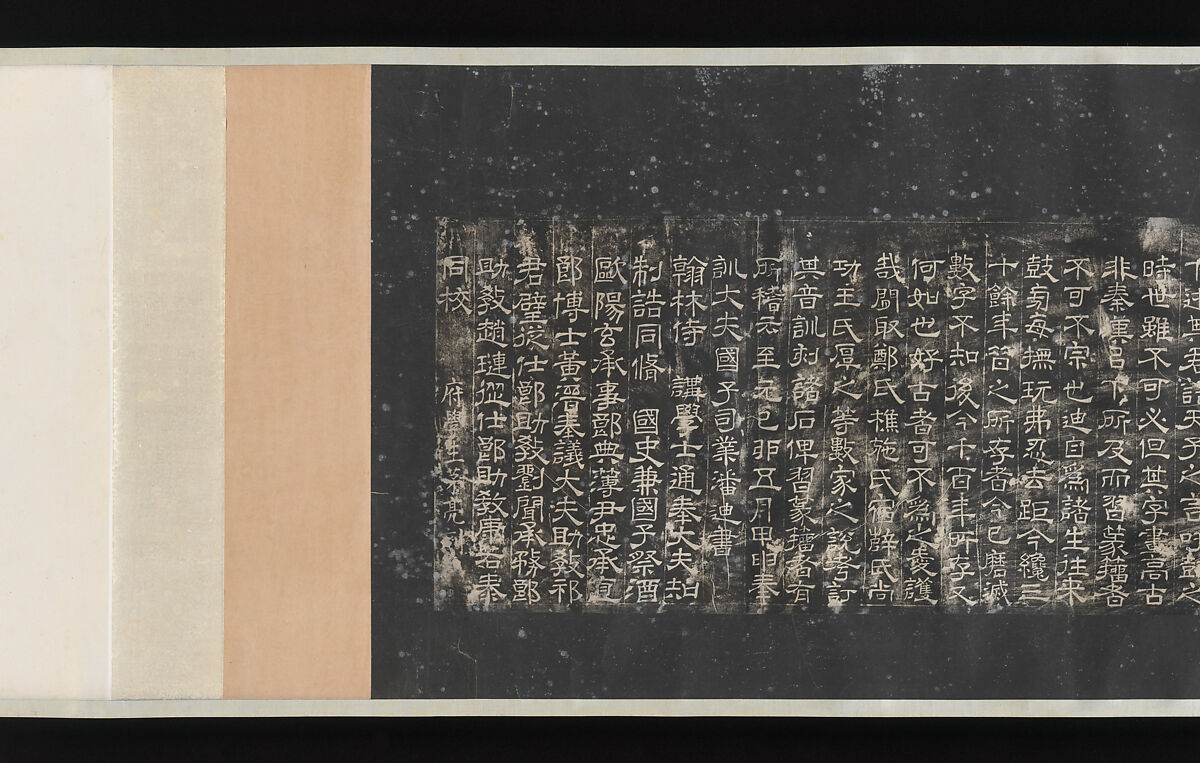 時世雖不可必但其字畫高古
非秦漢㠯下所及而習篆籀者
不可不宗也迪自爲諸生往來
鼓旁每撫玩弗忍去距今纔三
十餘年昔之所存者今已磨滅
數字不知後今千百年所存又
何如也好古者可不爲之愛護
哉閒取鄭氏樵施氏宿薛氏尚
功王氏厚之等數家之說考訂
其音訓刻諸石俾習篆籀者有
所稽云至元己卯五月甲申奉
訓大夫國子司業潘迪書
翰林侍 講學士通奉大夫知
制誥同脩 國史兼國子祭酒
歐陽玄承事郎典簿尹忠承直
郎博士黃溍奉議大夫助教祁
君璧從仕郎助教劉聞承務郎
助教趙璉從仕郎助教康若泰
同校 府學生茅亮